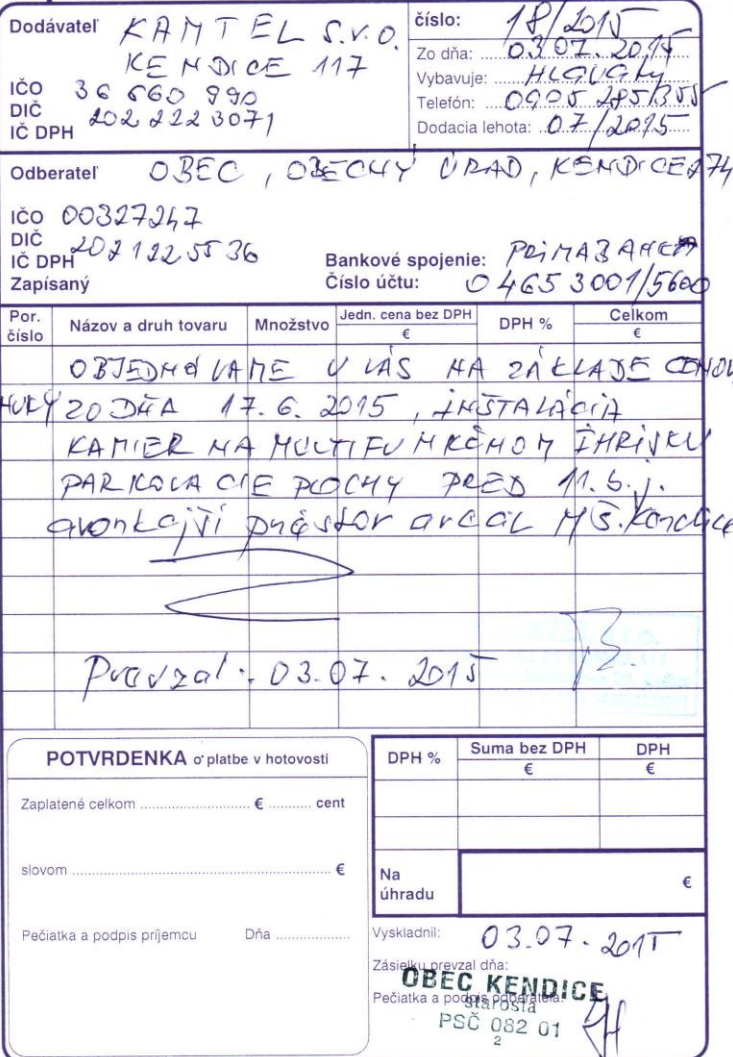 Dodávateľ KAMTEL s.r.o.
KENDICE 117
IČO 36 660 990
DIČ
IČ DPH 202 222 3071
číslo: 18/2015
Zo dňa: 03.07.2015
Vybavuje:
Telefón: 0905 285/355
Dodacia lehota: 07/2015
Odberateľ OBEC, OBECNÝ ÚRAD, KENDICE 274
IČO 00327247
DIČ
IČ DPH 2021225536
Zapísaný
Bankové spojenie: PRIMABANKA
Číslo účtu: 04653001/5600
Por. číslo Názov a druh tovaru Množstvo Jedn. cena bez DPH € DPH % Celkom €
OBJEDNÁVAME U VÁS NA ZÁKLADE CENOV
NUKY ZO DŇA 17.6.2015, INŠTALÁCIA
KAMIER NA MULTIFUNKČNOM IHRISKU
PARKOVACIE PLOCHY PRED 11.b.j.
avonkajší priestor areál MŠ. Kendice
Prevzal: 03.07.2015
POTVRDENKA o platbe v hotovosti
Zaplatené celkom € cent
slovom €
Pečiatka a podpis príjemcu Dňa
DPH % Suma bez DPH € DPH €
Na úhradu €
Vyskladnil: 03.07.2015
Zásielku prevzal dňa:
Pečiatka a podpis odberateľa:
OBEC KENDICE
starosta
PSČ 082 01
2